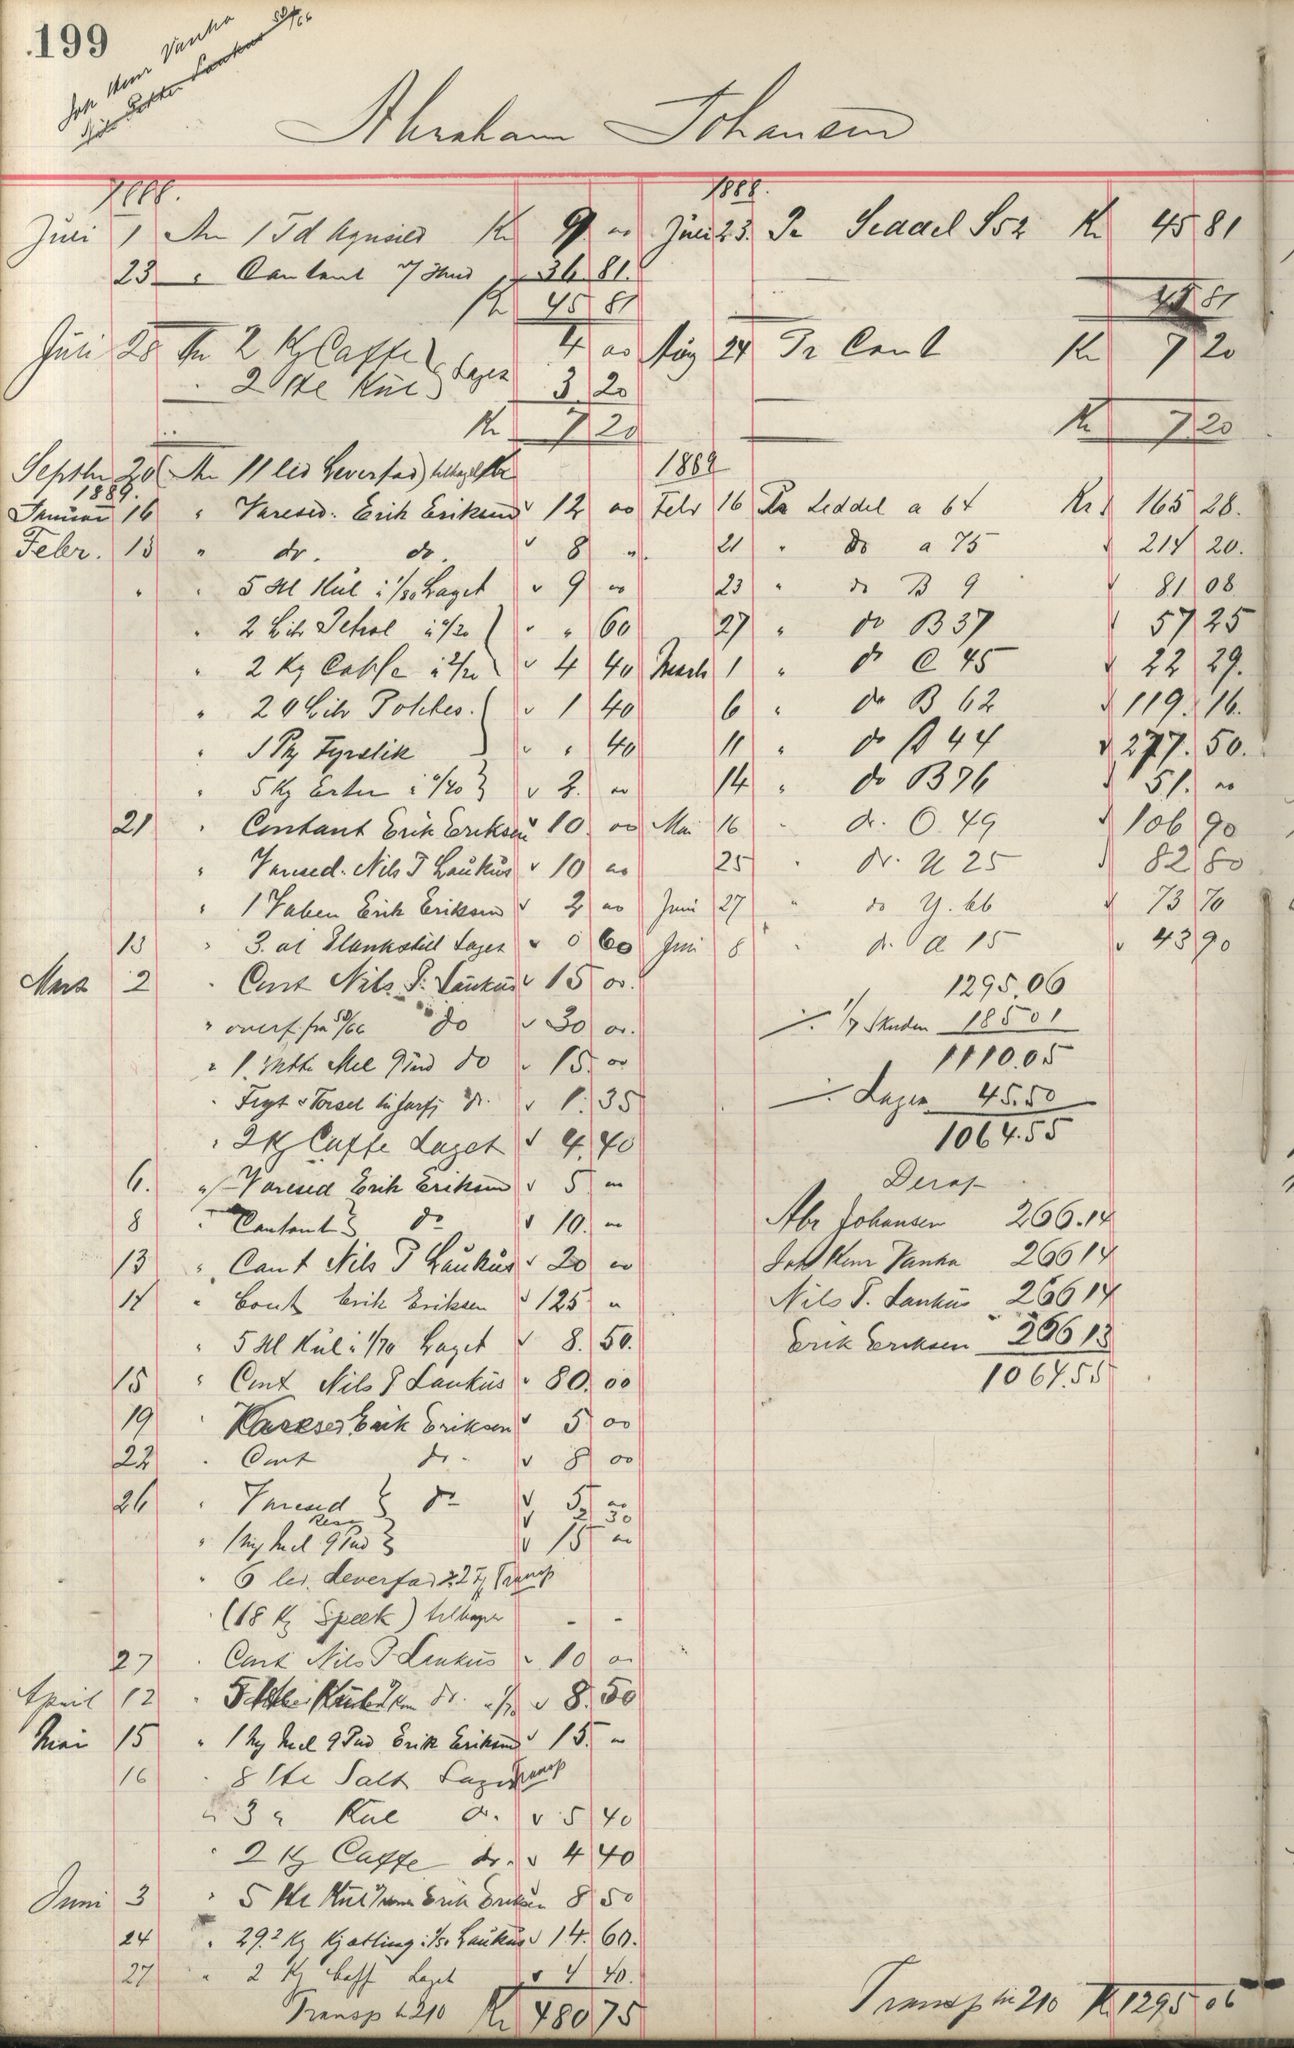 199
Joh Henr Vanka
50/66
Abraham Johansen
1888.
Juli 1 An 1 Td Agnsild Kr 9 00
23 " Contant 36 81.
Kr 45 81
Juli 28 An 2 Kg Caffe Laget 4 00
" 2 Hl Kul 3 20
Kr 7 20
Septbr 20 (An 11 led Leverfad) tilbagel Kr
1889.
Januar 16 " Varesed. Erik Eriksen v 12 00
Febr. 13 " do. do. v 8 "
" " 5 Hl Kul à 1/80 Laget v 9 00
" 2 Litr Petrol à "/30 v " 60
" 2 Kg Caffe à 2/20 v 4 40
" 20 Litr Potetes. v 1 40
" 1 Pk Fyrstik v " 40
" 5 Kg Erter à "/40 v 2. 00
21 " Contant Erik Eriksen v 10 00
" Varesed. Nils P Laukus v 10 00
" 1 Erik Eriksen v 2 00
13 " 3. al Laget v 0 60
Marts 2 " Cont Nils P. Laukus v 15 00.
" overf. fra 50/66 do v 30 00.
" 1. Mel 9 Pud do v 15. 00
" do. v 1. 35
" 2 Kg Caffe Laget v 4. 40
6. " Varesed Erik Eriksen v 5 00
8 " Contant do v 10. 00
13 " Cont Nils P Laukus v 20 00
14 " Cont Erik Eriksen v 125 "
" 5 Hl Kul à 1/70 Laget v 8. 50.
15 " Cont Nils P Laukus v 80. 00
19 " Varesed. Erik Eriksen v 5 00
22 " Cont do. v 8 00
26 " Varesed do v 5 00
v 2 30
" Mel 9 Pud v 15 00
" 6 led. Leverfad Transp
(18 Kg Speek) tilbager - -
27 " Cont Nils P Laukus v 10 00
April 12 " do. v 8. 50
Mai 15 " 1 Mel 9 Pud Erik Eriksen v 15. 00
16 " 8 Hl Salt Laget Transp
" 3 " Kul do. v 5 40
" 2 Kg Caffe do. v 4 40
Juni 3 " 5 Hl Kul Erik Eriksen 8 50
24 " 29.2 Kg Kjøtling à "/50 Laukus v 14. 60.
27 " 2 Kg Caff Laget v 4 40.
Transp til 210 Kr 480 75
1888.
Juli 23. Pr Seddel S52 Kr 45 81
45 81
Aug 24 Pr Cont Kr 7 20
Kr 7. 20
1889
Febr 16 Pr Seddel a 64 Kr 165 28.
21 " do a 75 v 214 20.
23 " do B 9 v 81 08
27 " do B 37 v 57 25
Marts 1 " do C 45 v 22 29.
6 " do B 62 v 119. 16.
11 " do A 44 v 277. 50.
14 " do B 76 v 51. 00
Mai 16 " do. O. 49 v 106 90
25 " do. U 25 v 82 80
Juni 27 " do Y. 66 v 73 70
Juni 8 " do. a 15 v 43 90
1295.06
./. 1/7 Skuden 185 01
1110.05
./. Lagen 45.50
1064.55
Deraf
Abr Johansen 266.14
Joh Henr Vanka 266 14
Nils P. Laukus 266 14
Erik Eriksen 266 13
1064.55
Transp til 210 Kr 1295 06